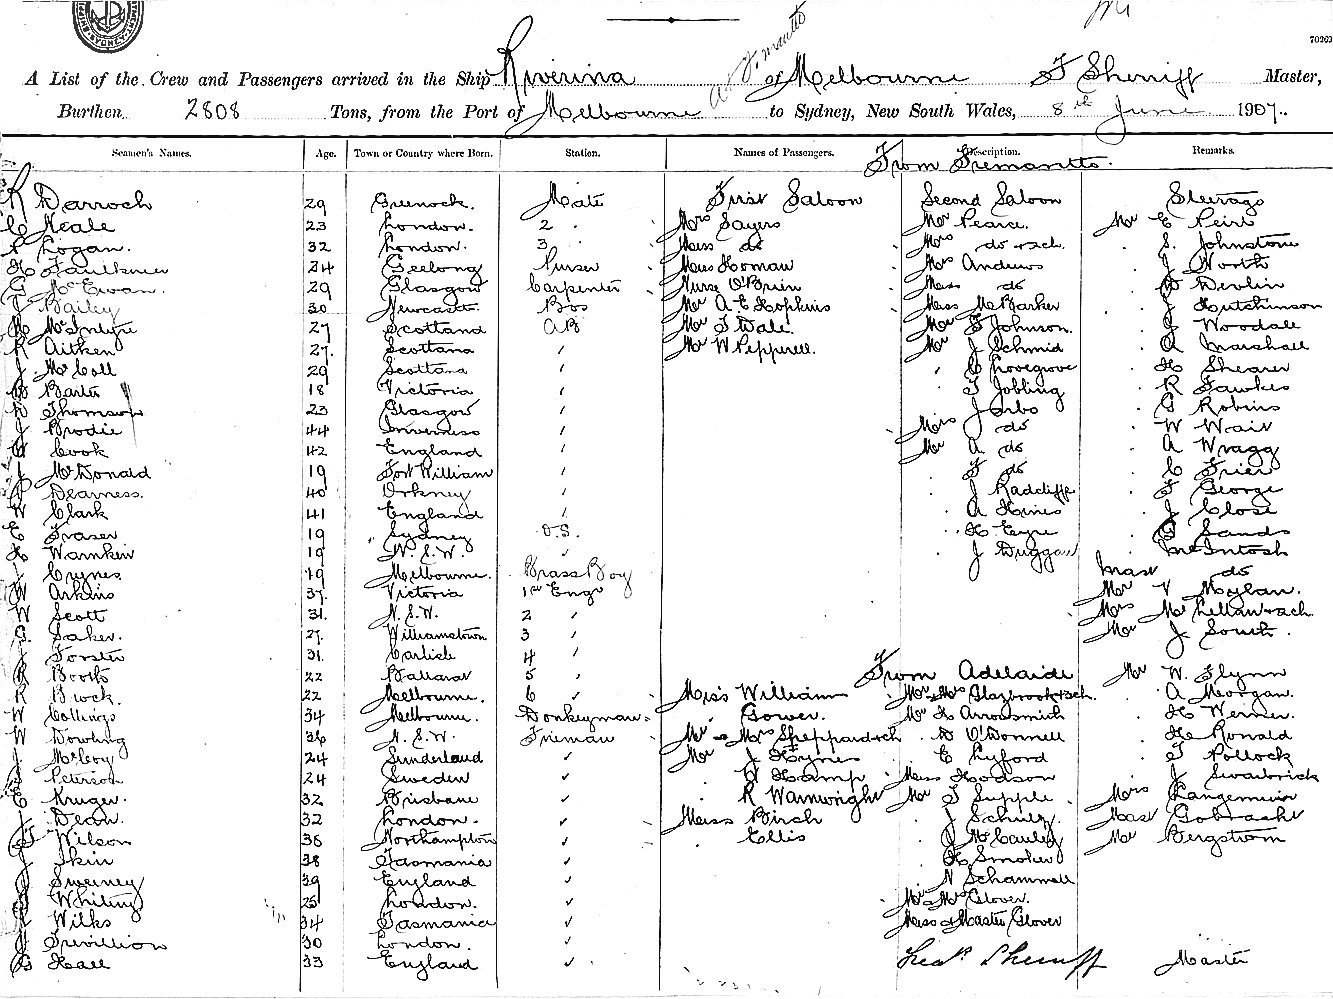 A List of the Crew and Passengers arrived in the Ship Riverina of Melbourne F Sherriff Master,
Burthen 2808 Tons, from the Port of Melbourne to Sydney, New South Wales, 8th June 1907.
Seamen's Names. Age. Town or Country where Born. Station. Names of Passengers. Description. Remarks.
From Fremantle.
R Darroch 29 Greenock. Mate First Saloon Second Saloon Steerage
C Neale 23 London. 2 Mrs Sayers Mr Pearce. Mr E Peirs
P Logan. 32 London. 3 Miss do Mrs do & ch. S. Johnstone
H Faulkner 24 Geelong Purser Miss Homan Mrs Andrews J North
G McEwan. 29 Glasgow Carpenter Nurse O'Brien Miss do Devlin
J Bailey 30 Newcastle Bos Mr A E Hopkins Miss McBarker J Hutchinson
McIntyre 27 Scotland AB Mr T Dale Mr F Johnson. J Woodale
R Aitken 27. Scotland Mr W Pepperell. Mr J Schmid A Marshall
J McColl 29 Scotland C Lovegrove H Shearer
Barter 18 Victoria T Jobling R Fawkes
Thomson 23 Glasgow J G Robins
J Brodie 44 Inverness Mrs do W Wait
W Cook 42 England Mr A do A Wragg
J McDonald 19 Fort William F do C Frier
Dearness. 40 Orkney J Radcliffe F George
W Clark 41 England A Hines J Close
E Fraser 19 Sydney O.S. H Eyre G Sands
H Warnken 19 N.S.W. J Duggan McIntosh
J Crynes 19 Melbourne. Brass Boy Mast do
W Arkins 37 Victoria 1st Engr Mr V Moylan.
W Scott 31. N.S.W. 2 Mrs McLellan & ch.
G. Baker. 27. Williamstown 3 Mr J South.
J Forster 31. Carlisle 4
R Booth 22 Ballarat 5 From Adelaide Mr W. Flynn
R Brock. 22 Melbourne. 6 Misss William Mr & Mrs Glazbrook & ch. A Morgan.
W Collings 34 Melbourne. Donkeyman. Gower. Mr H Arrowsmith H Werner.
W Dowling 36 N.S.W. Fireman Mr & Mrs Sheppard & ch D O'Donnell H Ronald
J McCoy 24 Sunderland Mr J Hynes E Lyford T Pollock
Peterson 24 Sweden W Kamp Miss Hodson J Swarbrick
E Kruger. 32 Brisbane R Wainwright Mr T Supple Mrs Langemuir
J Dean. 32 London. Miss Birch J Schulz. Mast Gobracht
J Wilson 36 Northampton Ellis J McCauley Mr Bergstrom
J Skin 38 Tasmania H Smoker
J Sweeney 39 England N Schammell
J Whiting 25 London. Mr & Mrs Glover.
J Wilks 34 Tasmania Miss & Master Glover
J Trevillion 30 London.
G Hall 33 England Geo. Sherriff Master